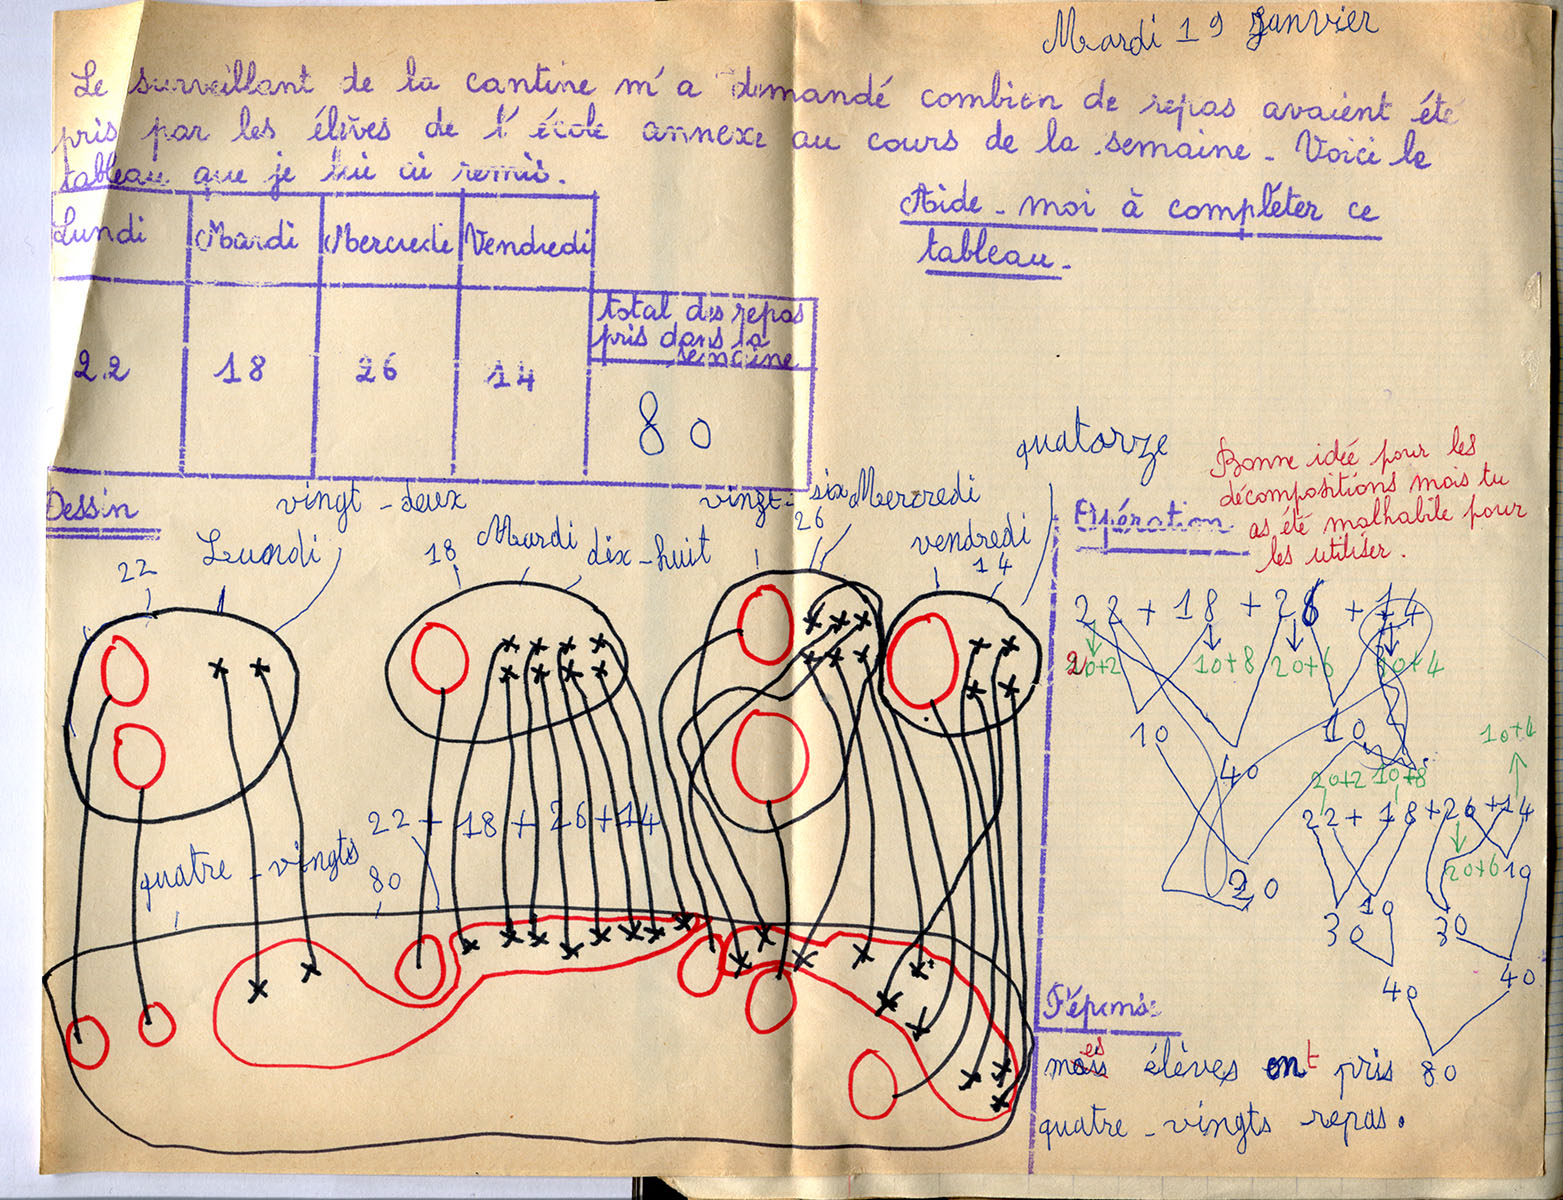 Mardi 19 Janvier
Le surveillant de la cantine m'a demandé combien de repas avaient été
pris par les élèves de l'école annexe au cours de la semaine - Voici le
tableau que je lui ai remis.
Aide-moi à compléter ce
tableau -
Lundi Mardi Mercredi Vendredi
total des repas
pris dans la
semaine
22 18 26 14
80
Dessin
vingt-deux
vingt-six Mercredi
quatorze
22 Lundi
18 Mardi dix-huit
26
vendredi
14
22 + 18 + 26 + 14
quatre-vingts
80
Bonne idée pour les
décompositions mais tu
as été malhabile pour
les utiliser.
Opération
22 + 18 + 26 + 14
20+2 10+8 20+6 10+4
10 10
40
20
10+4
20+2 10+8
22 + 18 + 26 + 14
20+6 10
30 10 30
40 40
80
Réponse
mes élèves ont pris
quatre-vingts repas.